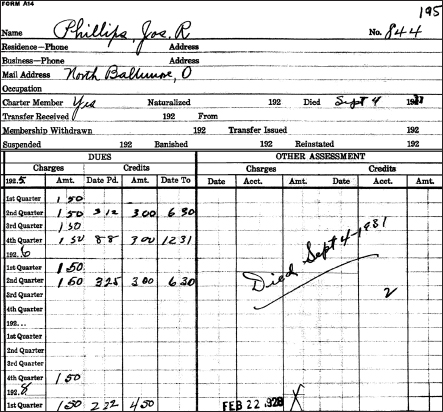 FORM A14
195
Name Phillips, Jos. R No. 844
Residence—Phone Address
Business—Phone Address
Mail Address North Baltimore, O
Occupation
Charter Member Yes Naturalized 192 Died Sept 4 19
Transfer Received 192 From
Membership Withdrawn 192 Transfer Issued 192
Suspended 192 Banished 192 Reinstated 192
DUES OTHER ASSESSMENT
Charges Credits Charges Credits
192.5 Amt. Date Pd. Amt. Date To Date Acct. Amt. Date Acct. Amt.
1st Quarter 1 50
2nd Quarter 1 50 3 12 3 00 6 30
3rd Quarter 1 50
4th Quarter 1 50 8 8 3 00 12 31
192.6
1st Quarter 1 50
2nd Quarter 1 50 3 25 3 00 6 30
3rd Quarter
4th Quarter
192...
1st Quarter
2nd Quarter
3rd Quarter
4th Quarter 1 50
192.8
1st Quarter 1 50 2 22 4 50 FEB 22 1928 X
Died Sept 4-1931
2